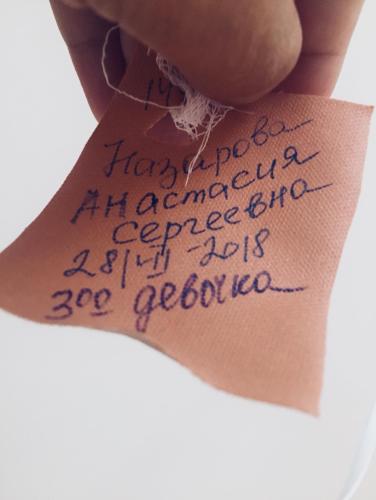 Назырова
Анастасия
Сергеевна
28/VII-2018
3⁰⁰ девочка